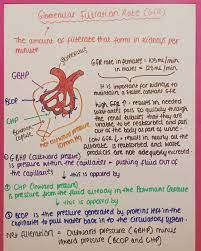 Glomerular Filtration Rate (GFR)
The amount of filterate that forms in kidneys per
minute
glomerulus
GFR rate in females = 105mL/min
in males = 125mL/min
GBHP
BCOP
CHP
Bowman's
capsule
It is important for kidneys to
maintain a constant GFR
high GFR = results in needed
substances pass so quickly through
the renal tubules that they are
unable to be reabsorbed, and pass
out of the body as part of urine
low GFR = result in nearly all the
filterate is reabsorbed and waste
products are not adequately excreted.
① GBHP (outward pressure)
is pressure within the capillaries = pushing fluid out of
the capillaries
this is opposed by
② CHP (inward pressure)
is pressure from the fluid already in the Bowman's Capsule
this is opposed by
③ BCOP is the pressure generated by proteins left in the
capillaries to pull water back in to the circulatory system.
Net filteration = Outward pressure (GBHP) minus
inward pressure (BCOP and CHP)